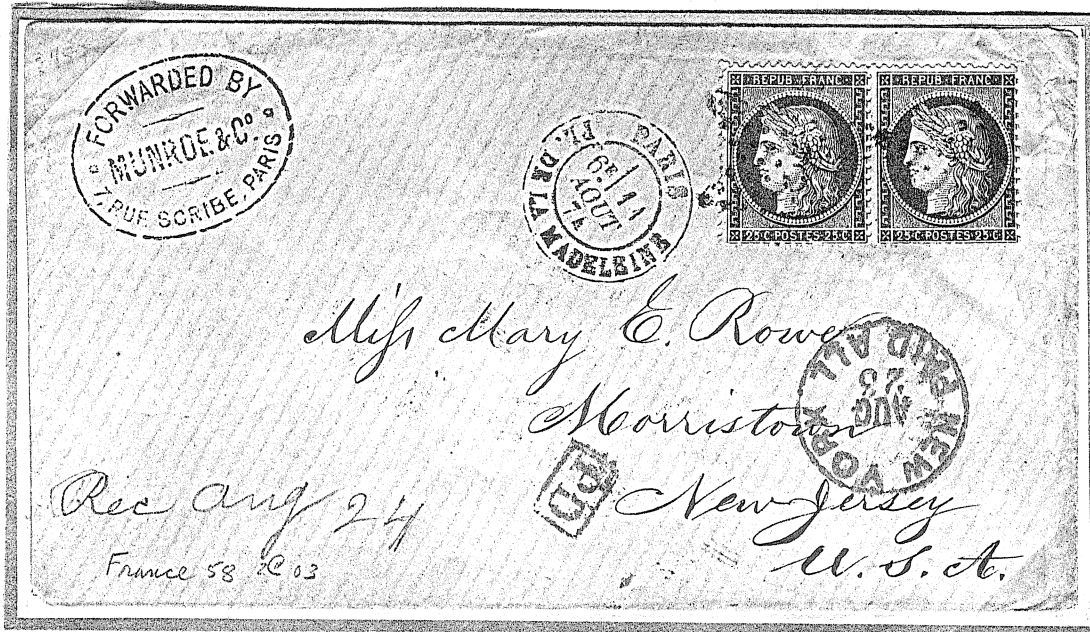 FORWARDED BY
MUNROE & Cº
7, RUE SCRIBE, PARIS
PARIS
6E 11
AOUT
74
DE LA MADELEINE
REPUB FRANC
25 C POSTES 25 C
REPUB FRANC
25 C POSTES 25 C
Miss Mary E. Rowe
Morristown
New Jersey
U. S. A.
NEW YORK
AUG
23
PAID ALL
PD
Rec Aug 24
France 58
03